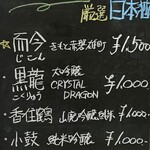 厳選 日本酒
☆ 而今 ¥1,500
じこん
・黒龍 大吟醸 ¥1,000
こくりゅう CRYSTAL
DRAGON
・香住鶴 山廃 吟醸 ¥1,000
・小鼓 純米吟醸 ¥1,000